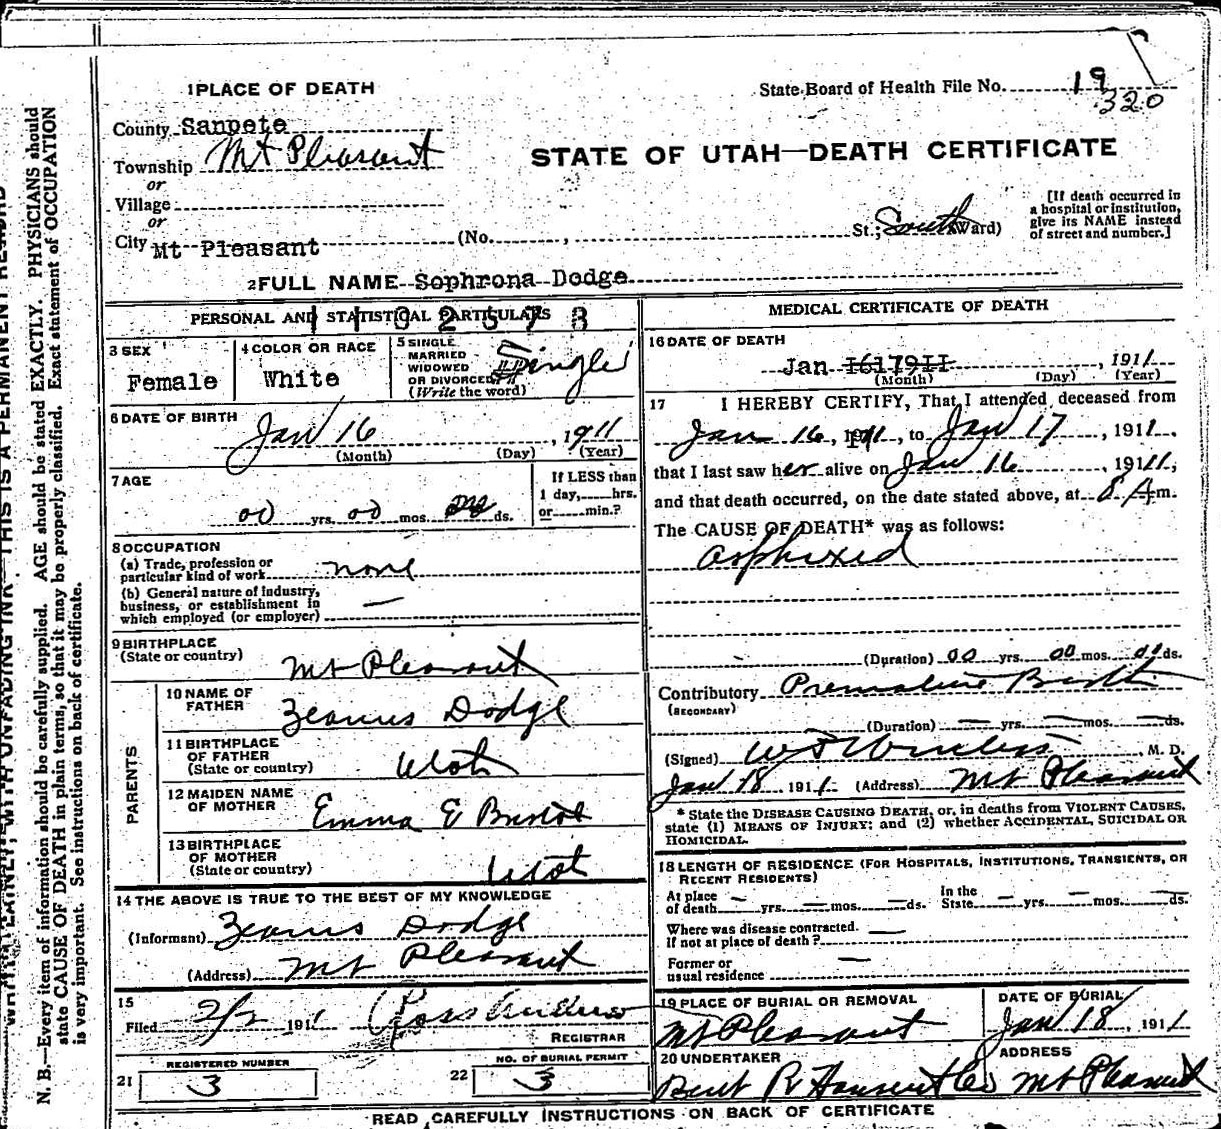 1 PLACE OF DEATH
State Board of Health File No. 19
320
County Sanpete
Township Mt Pleasant
or
Village
or
City Mt Pleasant (No. , St.; South Ward)
STATE OF UTAH—DEATH CERTIFICATE
[If death occurred in
a hospital or institution,
give its NAME instead
of street and number.]
2 FULL NAME Sophrona Dodge
PERSONAL AND STATISTICAL PARTICULARS
3 SEX
Female
4 COLOR OR RACE
White
5 SINGLE
MARRIED
WIDOWED
OR DIVORCED
(Write the word)
Single
6 DATE OF BIRTH
Jan 16, 1911
(Month) (Day) (Year)
7 AGE
00 yrs. 00 mos. ds.
If LESS than
1 day, hrs.
or min.?
8 OCCUPATION
(a) Trade, profession or
particular kind of work none
(b) General nature of industry,
business, or establishment in
which employed (or employer) —
9 BIRTHPLACE
(State or country)
Mt Pleasant
PARENTS
10 NAME OF
FATHER
Dodge
11 BIRTHPLACE
OF FATHER
(State or country)
Utah
12 MAIDEN NAME
OF MOTHER
Emma E
13 BIRTHPLACE
OF MOTHER
(State or country)
Utah
14 THE ABOVE IS TRUE TO THE BEST OF MY KNOWLEDGE
(Informant) Dodge
(Address) Mt Pleasant
15
Filed 2/2 1911
REGISTRAR
REGISTERED NUMBER
21 3
NO. OF BURIAL PERMIT
22 3
MEDICAL CERTIFICATE OF DEATH
16 DATE OF DEATH
Jan , 1911
(Month) (Day) (Year)
17 I HEREBY CERTIFY, That I attended deceased from
Jan 16, 1911, to Jan 17, 1911,
that I last saw her alive on Jan 16, 1911,
and that death occurred, on the date stated above, at 8 A m.
The CAUSE OF DEATH* was as follows:
asphixed
(Duration) 00 yrs. 00 mos. ds.
Contributory Premature Birth
(SECONDARY)
(Duration) — yrs. — mos. — ds.
(Signed) , M. D.
Jan 18 1911. (Address) Mt Pleasant
* State the DISEASE CAUSING DEATH, or, in deaths from VIOLENT CAUSES,
state (1) MEANS OF INJURY; and (2) whether ACCIDENTAL, SUICIDAL OR
HOMICIDAL.
18 LENGTH OF RESIDENCE (FOR HOSPITALS, INSTITUTIONS, TRANSIENTS, OR
RECENT RESIDENTS)
At place
of death — yrs. — mos. — ds.
In the
State — yrs. — mos. — ds.
Where was disease contracted.
if not at place of death? —
Former or
usual residence —
19 PLACE OF BURIAL OR REMOVAL
Mt Pleasant
DATE OF BURIAL
Jan 18, 1911
20 UNDERTAKER
Bent R Hansen
ADDRESS
Mt Pleasant
READ CAREFULLY INSTRUCTIONS ON BACK OF CERTIFICATE
WRITE PLAINLY, WITH UNFADING INK—THIS IS A PERMANENT RECORD
N. B.—Every item of information should be carefully supplied. AGE should be stated EXACTLY. PHYSICIANS should
state CAUSE OF DEATH in plain terms, so that it may be properly classified. Exact statement of OCCUPATION
is very important. See instructions on back of certificate.